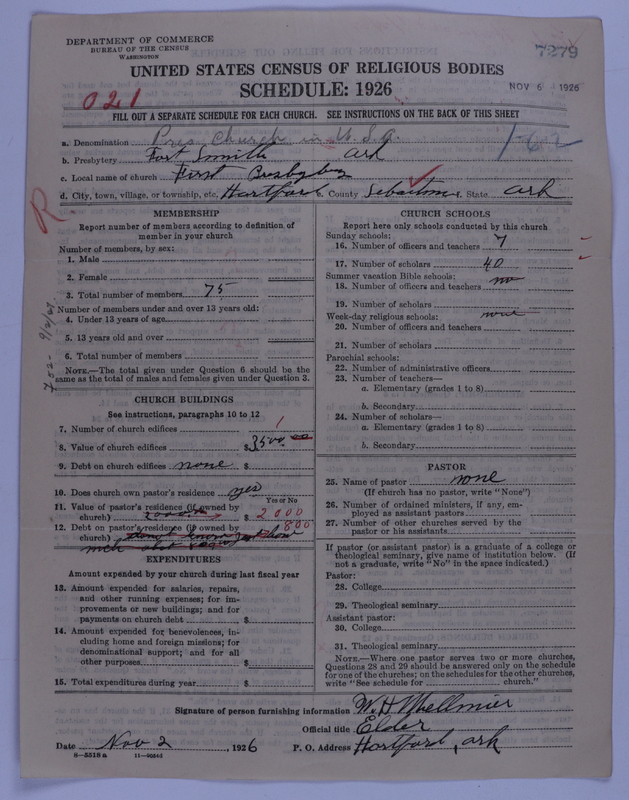 DEPARTMENT OF COMMERCE
BUREAU OF THE CENSUS
WASHINGTON
7279
UNITED STATES CENSUS OF RELIGIOUS BODIES
SCHEDULE: 1926
NOV 6 1926
021
FILL OUT A SEPARATE SCHEDULE FOR EACH CHURCH. SEE INSTRUCTIONS ON THE BACK OF THIS SHEET
a. Denomination Pres Church in U.S.A.
b. Presbytery Fort Smith Ark
c. Local name of church First
d. City, town, village, or township, etc. Hartford e. County Sebastian f. State Ark
R
MEMBERSHIP
Report number of members according to definition of
member in your church
Number of members, by sex:
1. Male
2. Female
3. Total number of members 75
Number of members under and over 13 years old:
4. Under 13 years of age
5. 13 years old and over
6. Total number of members
NOTE.—The total given under Question 6 should be the
same as the total of males and females given under Question 3.
CHURCH BUILDINGS
See instructions, paragraphs 10 to 12
7. Number of church edifices 1
8. Value of church edifices $3500 00
9. Debt on church edifices none $
10. Does church own pastor's residence yes
Yes or No
11. Value of pastor's residence (if owned by
church) $ 2000
12. Debt on pastor's residence (if owned by
church) 800
EXPENDITURES
Amount expended by your church during last fiscal year
13. Amount expended for salaries, repairs,
and other running expenses; for im-
provements or new buildings; and for
payments on church debt $
14. Amount expended for benevolences, in-
cluding home and foreign missions; for
denominational support; and for all
other purposes $
15. Total expenditures during year $
CHURCH SCHOOLS
Report here only schools conducted by this church
Sunday schools:
16. Number of officers and teachers 7
17. Number of scholars 40
Summer vacation Bible schools:
18. Number of officers and teachers no
19. Number of scholars
Week-day religious schools: none
20. Number of officers and teachers
21. Number of scholars
Parochial schools:
22. Number of administrative officers
23. Number of teachers—
a. Elementary (grades 1 to 8)
b. Secondary
24. Number of scholars—
a. Elementary (grades 1 to 8)
b. Secondary
PASTOR
25. Name of pastor none
(If church has no pastor, write "None")
26. Number of ordained ministers, if any, em-
ployed as assistant pastors
27. Number of other churches served by the
pastor or his assistants
If pastor (or assistant pastor) is a graduate of a college or
theological seminary, give name of institution below. (If
not a graduate, write "No" in the space indicated.)
Pastor:
28. College
29. Theological seminary
Assistant pastor:
30. College
31. Theological seminary
NOTE.—Where one pastor serves two or more churches,
Questions 28 and 29 should be answered only on the schedule
for one of the churches; on the schedules for the other churches,
write "See schedule for church."
Signature of person furnishing information W. H.
Official title Elder
Date Nov 2, 1926 P. O. Address Hartford, Ark
8—5518a